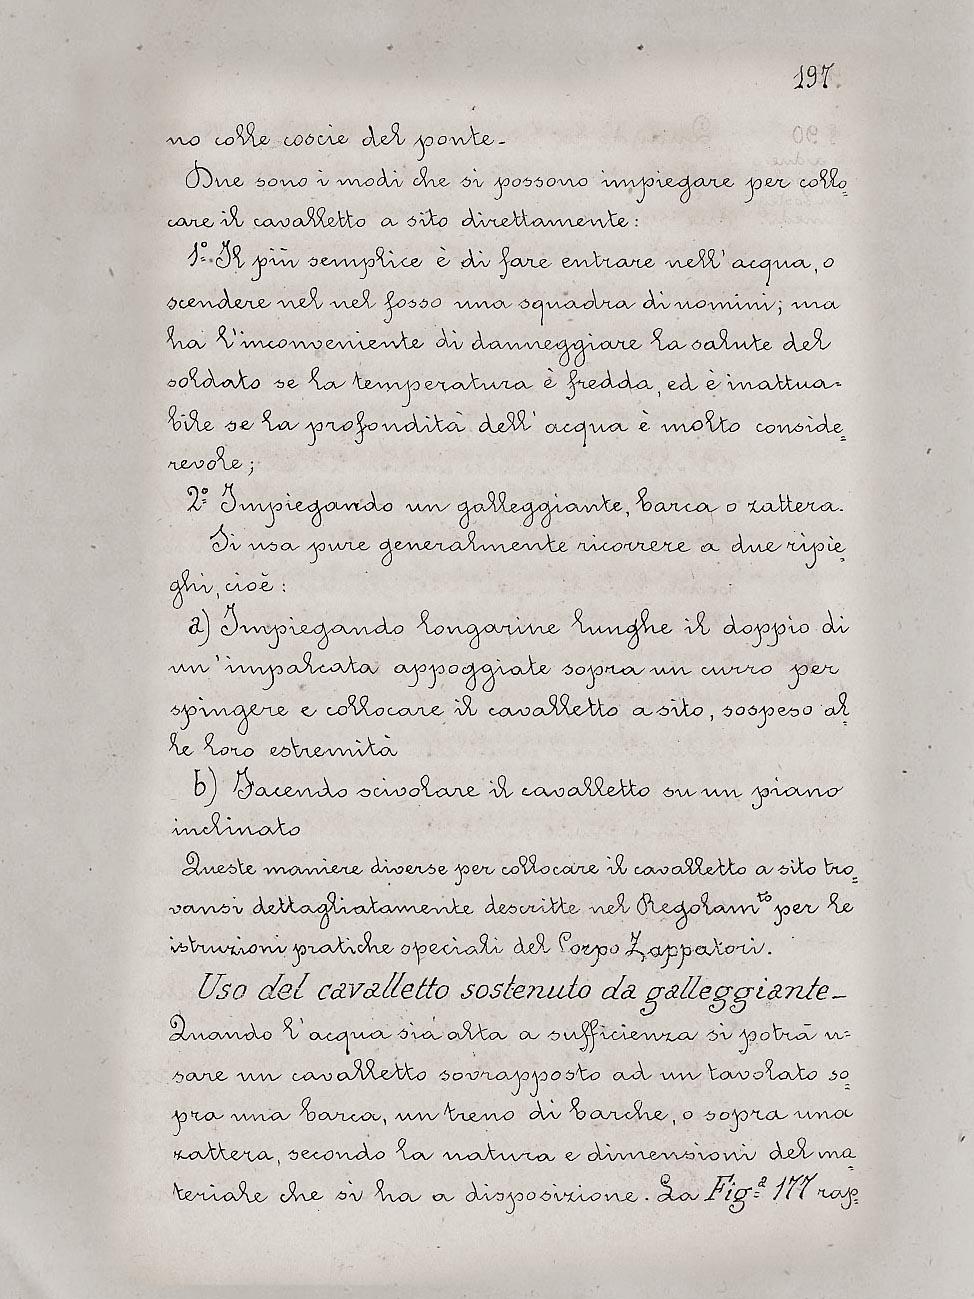 197
no colle coscie del ponte-
Due sono i modi che si possono impiegare per collo=
care il cavalletto a sito direttamente:
1.º Il più semplice è di fare entrare nell'acqua, o
scendere nel nel fosso una squadra di uomini; ma
ha l'inconveniente di danneggiare la salute del
soldato se la temperatura è fredda, ed è inattua=
bile se la profondità dell'acqua è molto conside=
revole;
2.º Impiegando un galleggiante, barca o zattera.
Si usa pure generalmente ricorrere a due ripie=
ghi, cioè:
a) Impiegando longarine lunghe il doppio di
un'impalcata appoggiate sopra un curro per
spingere e collocare il cavalletto a sito, sospeso al=
le loro estremità
b) Facendo scivolare il cavalletto su un piano
inclinato
Queste maniere diverse per collocare il cavalletto a sito tro=
vansi dettagliatamente descritte nel Regolamto per le
istruzioni pratiche speciali del Corpo Zappatori.
Uso del cavalletto sostenuto da galleggiante-
Quando l'acqua sia alta a sufficienza si potrà u=
sare un cavalletto sovrapposto ad un tavolato so=
pra una barca, un treno di barche, o sopra una
zattera, secondo la natura e dimensioni del ma=
teriale che si ha a disposizione. La Fig.ª 177 rap=